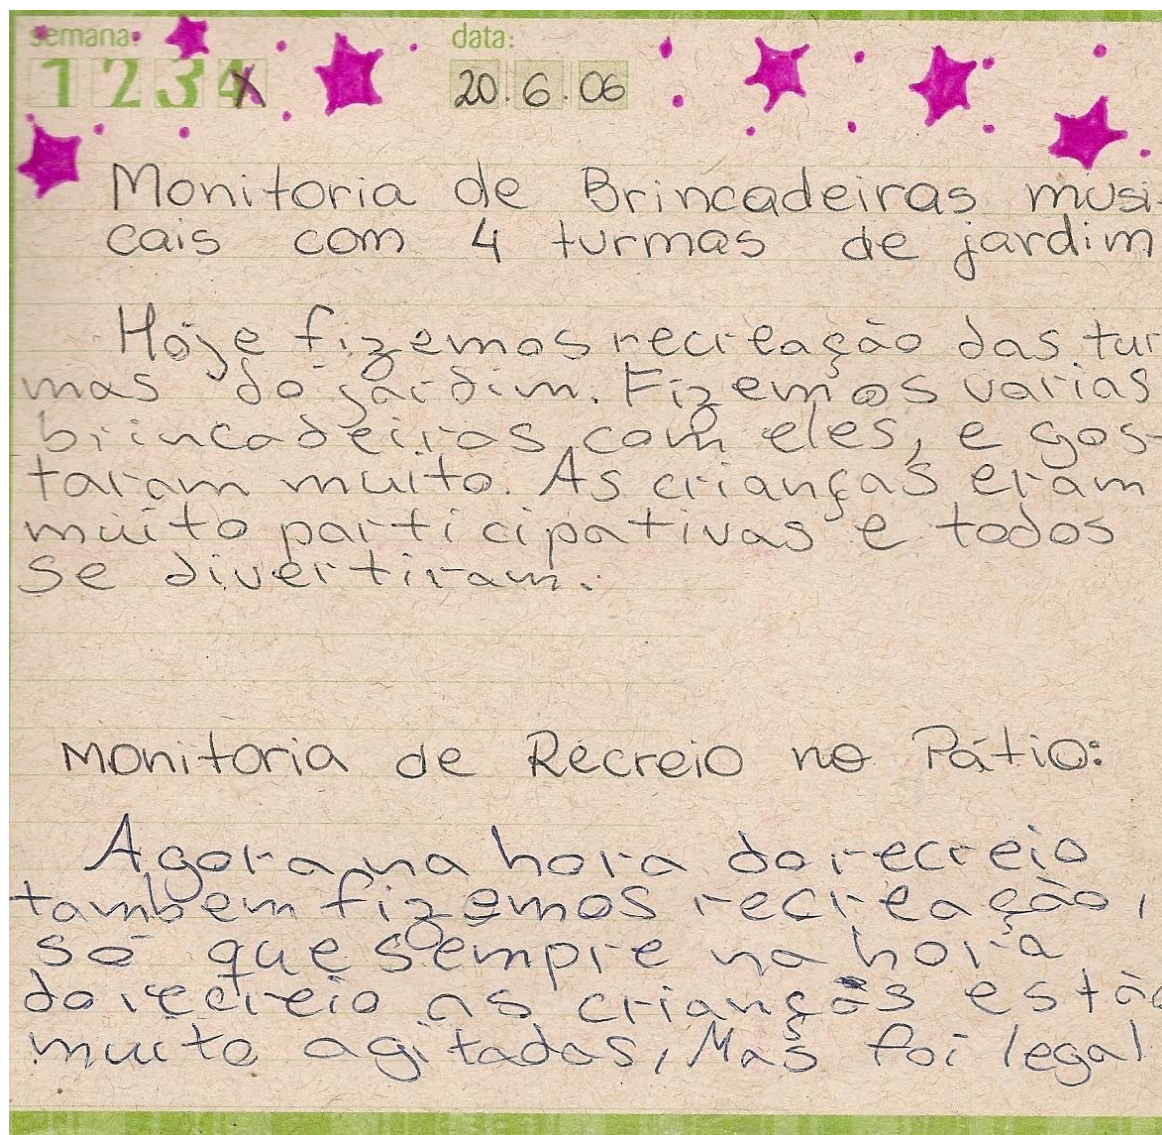 semana: data:
1 2 3 4 20. 6. 06
Monitoria de Brincadeiras musi-
cais com 4 turmas de jardim
Hoje fizemos recreação das tur
mas do jardim. Fizemos varias
brincadeiras com eles, e gos-
taram muito. As crianças eram
muito participativas e todos
se divertiram.
Monitoria de Recreio no Pátio:
Agora na hora do recreio
tambem fizemos recreação,
só que sempre na hora
do recreio as crianças estão
muito agitadas, Mas foi legal